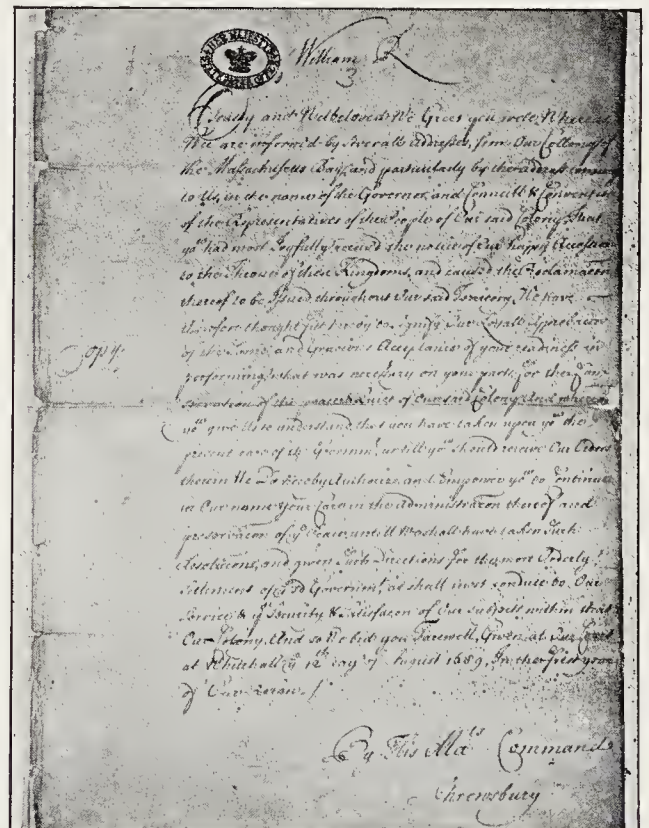 William R
3
Trusty and Welbeloved We Greet you well. Whereas
We are informed by severall Addresses, from Our Collony of
the Massachusetts Bay, and particularly by the address
to Us, in the name of the Governor, and Councill & Convention
of the Representatives of the People of Our said Colony, that
yo.^u had most Joyfully received the notice of Our happy Accession
to the Throne of these Kingdoms, and caused the Proclamacon
thereof to be Issued throughout Our said Territory, We have
therefore thought fitt hereby to signify Our Royall Approbacon
of the same, and Gracious Acceptance of your readiness in
performing what was necessary on your parts, for the
of the peace of Our said Colony, And whereas
yo.^u give Us to understand that you have taken upon yo.^u the
present care of the Governm.^t untill yo.^u should receive Our Orders
therein We Do hereby Authorise, and Empower yo.^u to Continue
in Our name your Care in the Administracon thereof and
preservacon of y.^e Peace, untill We shall have taken such
Resolucons, and given such Directions for the more Orderly
Settlement of y.^e s.^d Governm.^t as shall most conduce to Our
Service & y.^e Security & Satisfacon of Our subjects within that
Our Colony, And so We bid you Farewell, Given, at Our Court
at Whitehall y.^e 12^th day of August 1689, In the first year
of Our Reign /
Copy.
By His Ma.^ts Command
Shrewsbury